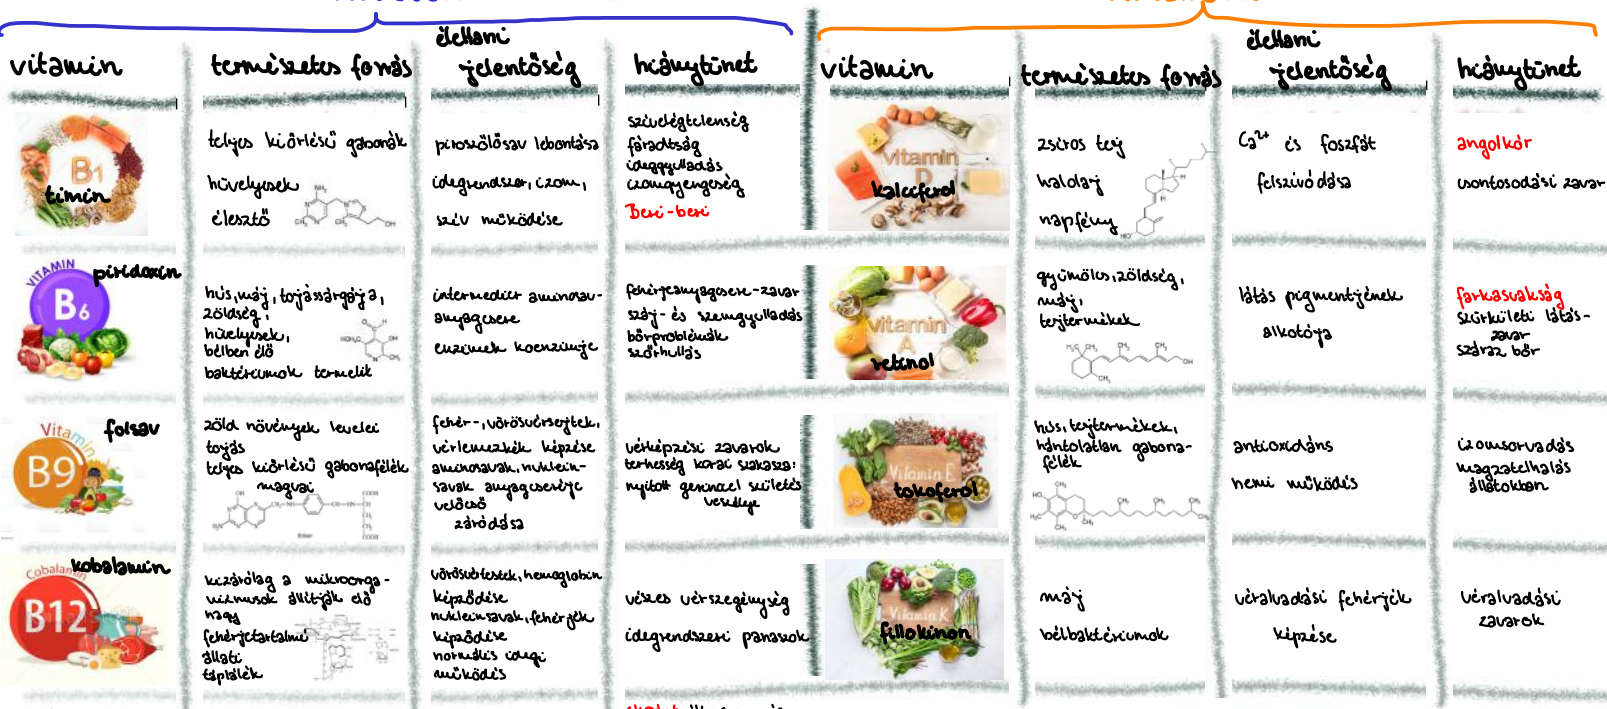 vitamin
természetes forrás
élettani
jelentőség
hiánytünet
B1
timin
teljes kiőrlésű gabonák
hüvelyesek
élesztő
NH₂
CH₃
OH
piroszőlősav lebontása
idegrendszer, izom,
szív működése
szívelégtelenség
fáradtság
ideggyulladás
izomgyengeség
Beri-beri
VITAMIN
B6
piridoxin
hús, máj, tojássárgája,
zöldség,
hüvelyesek,
bélben élő
baktériumok termelik
intermedier aminosav-
anyagcsere
enzimek koenzimje
fehérjeanyagcsere-zavar
száj- és szemgyulladás
bőrproblémák
szőrhullás
Vitamin
B9
folsav
zöld növények levelei
tojás
teljes kiőrlésű gabonafélék
magvai
fehér-, vörösvérsejtek,
vérlemezkék képzése
aminosavak, nuklein-
savak anyagcseréje
velőcső
záródása
vérképzési zavarok
terhesség korai szakasza:
nyitott gerinccel születés
veszélye
Cobalamin
B12
kobalamin
kizárólag a mikroorga-
nizmusok állítják elő
nagy
fehérjetartalmú
állati
táplálék
vörösvértestek, hemoglobin
képződése
nukleinsavak, fehérjék
képződése
normális idegi
működés
vészes vérszegénység
idegrendszeri panaszok
vitamin
természetes forrás
élettani
jelentőség
hiánytünet
vitamin
D
kalciferol
zsíros tej
halolaj
napfény
H
H
HO
Ca²⁺ és foszfát
felszívódása
angolkór
csontosodási zavar
vitamin
A
retinol
gyümölcs, zöldség,
máj,
tejtermékek
látás pigmentjének
alkotója
farkasvakság
szürkületi látás-
zavar
száraz bőr
Vitamin E
tokoferol
hús, tejtermékek,
hántolatlan gabona-
félék
antioxidáns
nemi működés
izomsorvadás
magzatelhalás
állatokban
Vitamin K
fillokinon
máj
bélbaktériumok
véralvadási fehérjék
képzése
véralvadási
zavarok